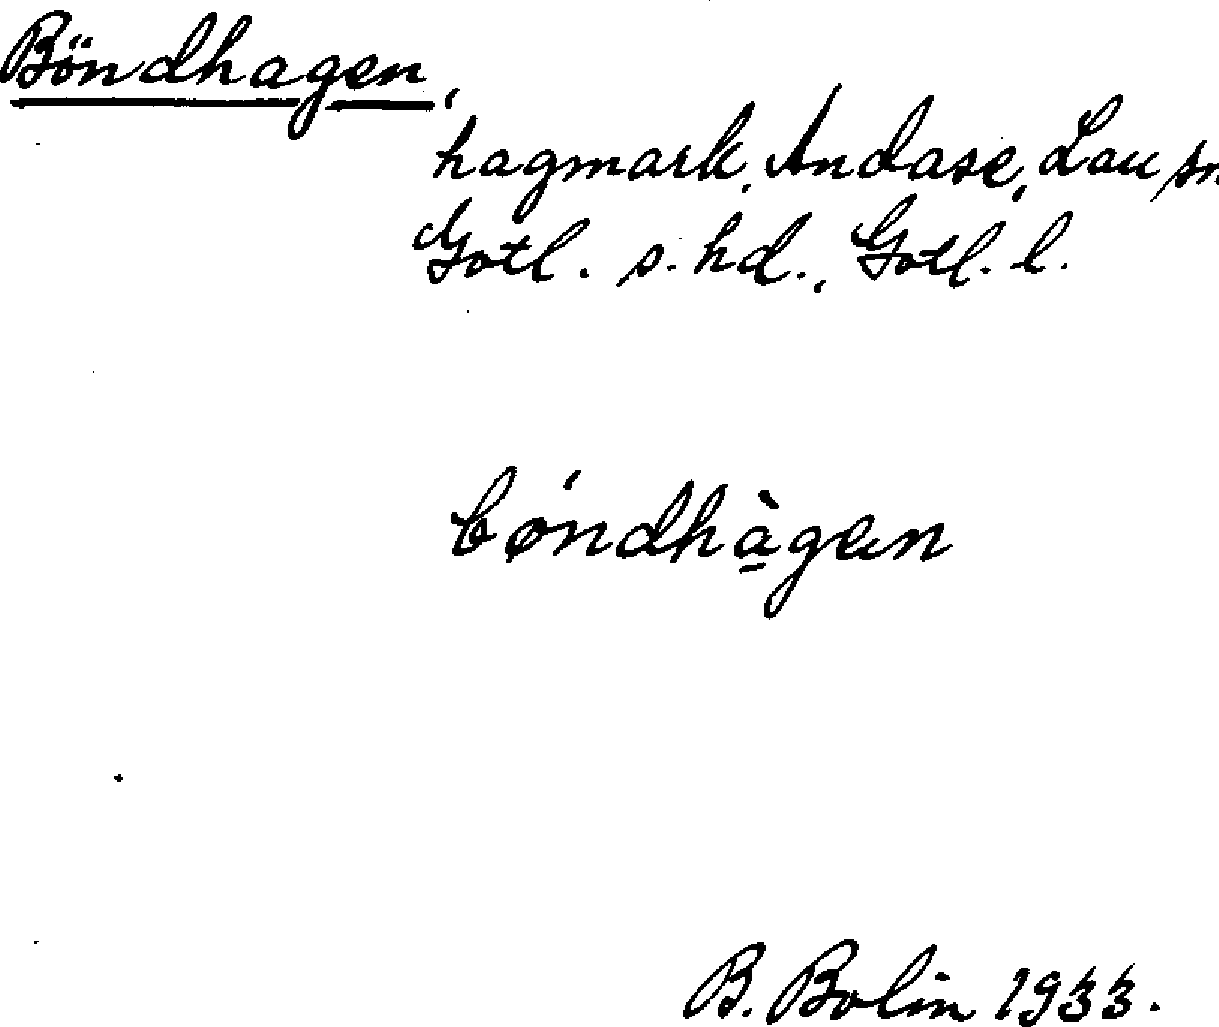 Böndhagen,
hagmark, Andase, Lau sn
Gotl. s. hd., Gotl. l.
bøndhàgen
B. Bolin 1933.